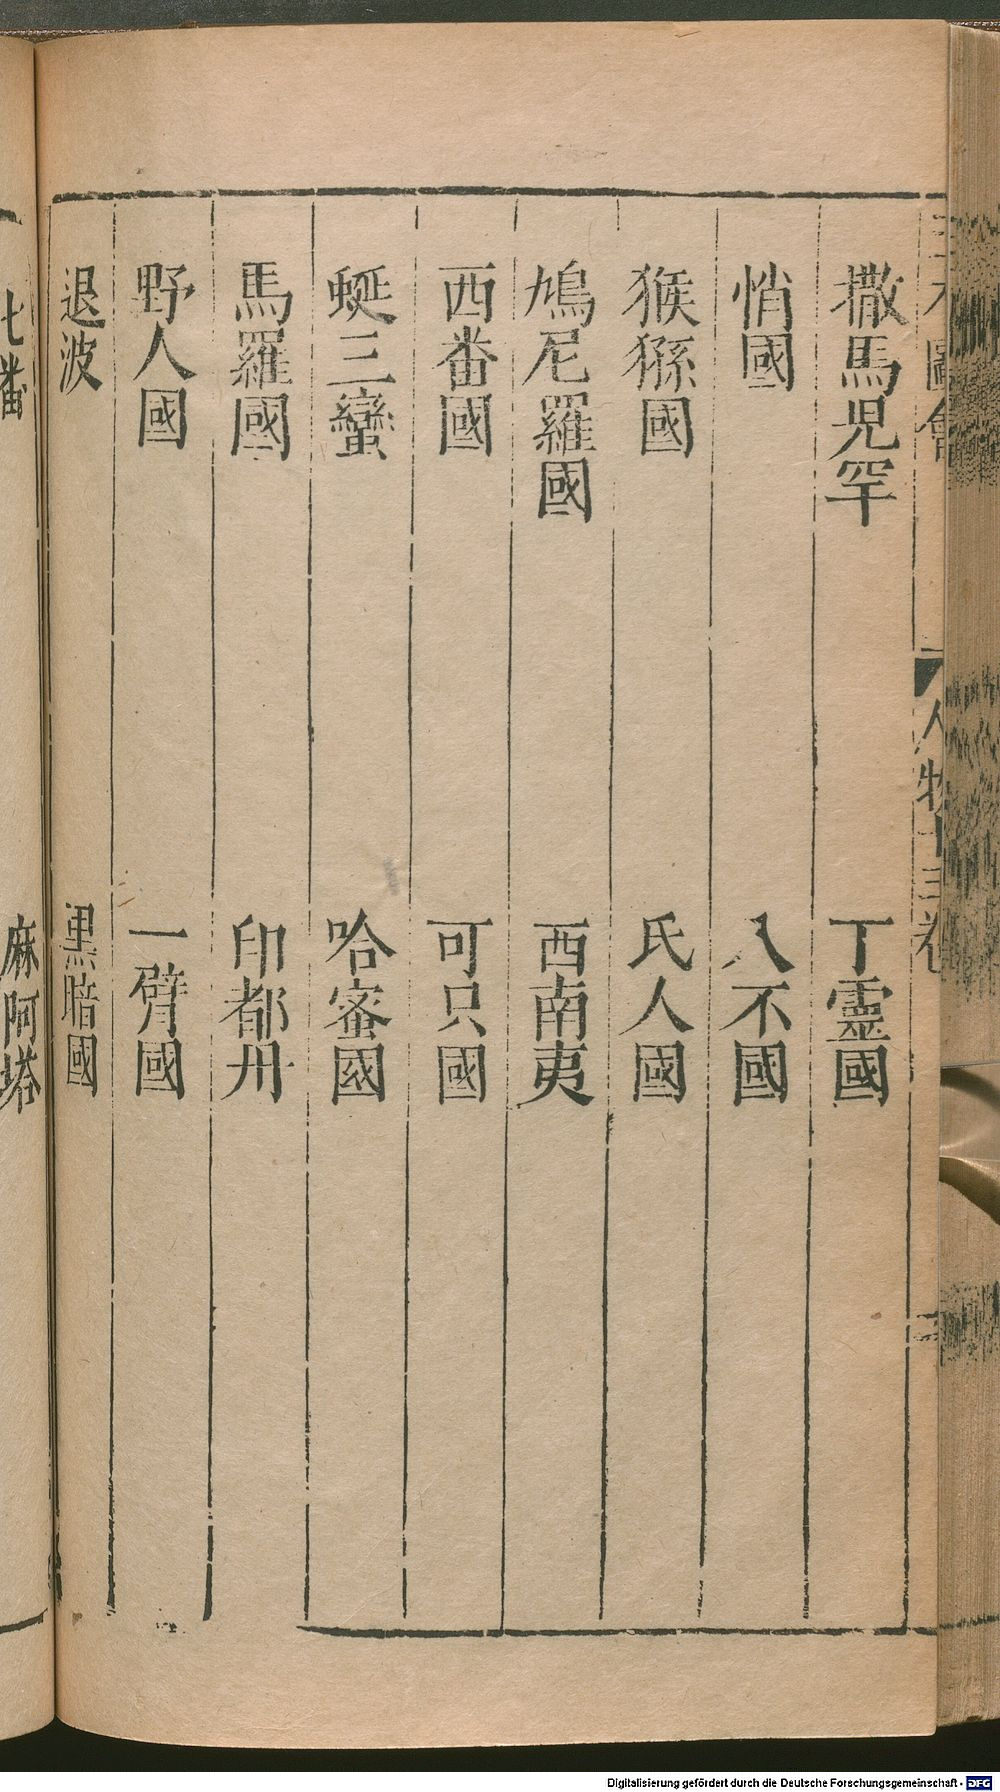 三才圖會 人物十三卷
撒馬児罕 丁靈國
悄國 入不國
猴猻國 氐人國
鳩尼羅國 西南夷
西番國 可只國
蜒三蠻 哈蜜國
馬羅國 印都丹
野人國 一臂國
退波 黒暗國
七番 麻阿塔
Digitalisierung gefördert durch die Deutsche Forschungsgemeinschaft - DFG